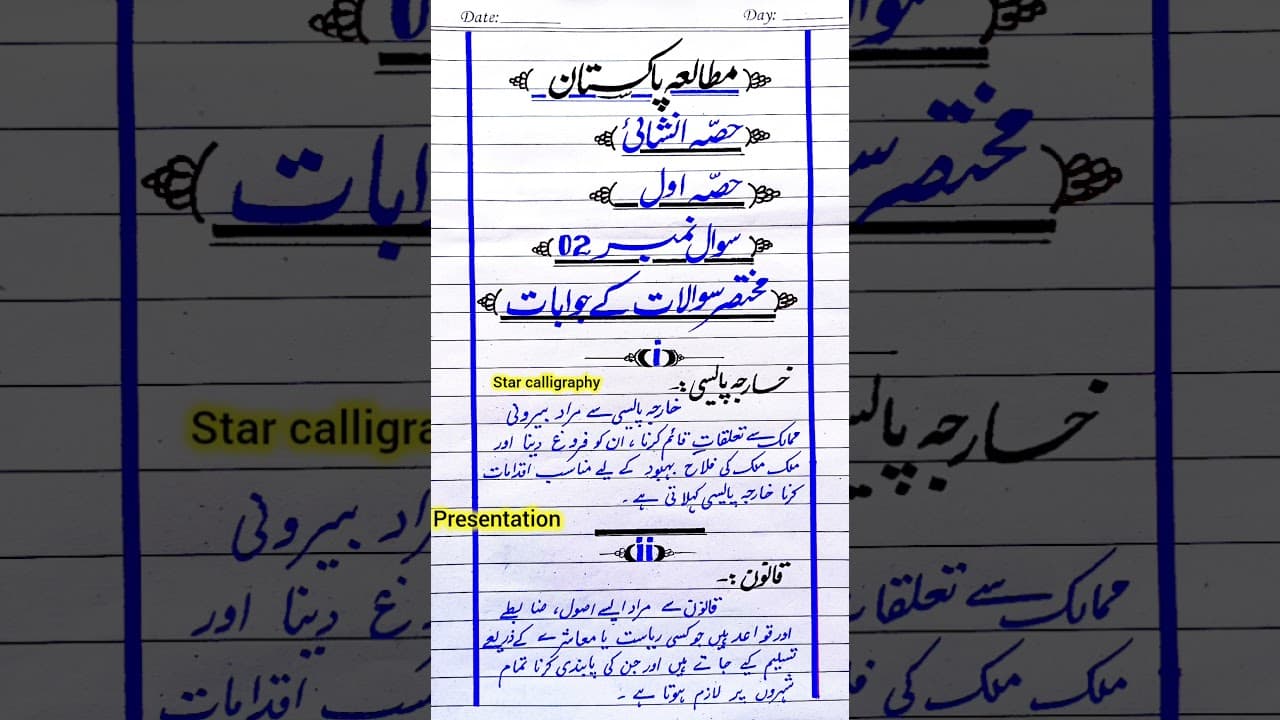 Date:________ Day: ________
مطالعہ پاکستان
حصّہ انشائیٔ
حصّہ اول
سوال نمبر 02
مختصر سوالات کے جوابات
i
خارجہ پالیسی :-
Star calligraphy
خارجہ پالیسی سے مراد بیرونی
ممالک سے تعلقات قائم کرنا ، ان کو فروغ دینا اور
ملک ملک کی فلاح بہبود کے لیے مناسب اقدامات
کرنا خارجہ پالیسی کہلاتی ہے ۔
Presentation
ii
قانون :-
قانون سے مراد ایسے اصول، ضابطے
اور قواعد ہیں جو کسی ریاست یا معاشرے کے ذریعے
تسلیم کیے جاتے ہیں اور جن کی پابندی کرنا تمام
شہروں پر لازم ہوتا ہے ۔